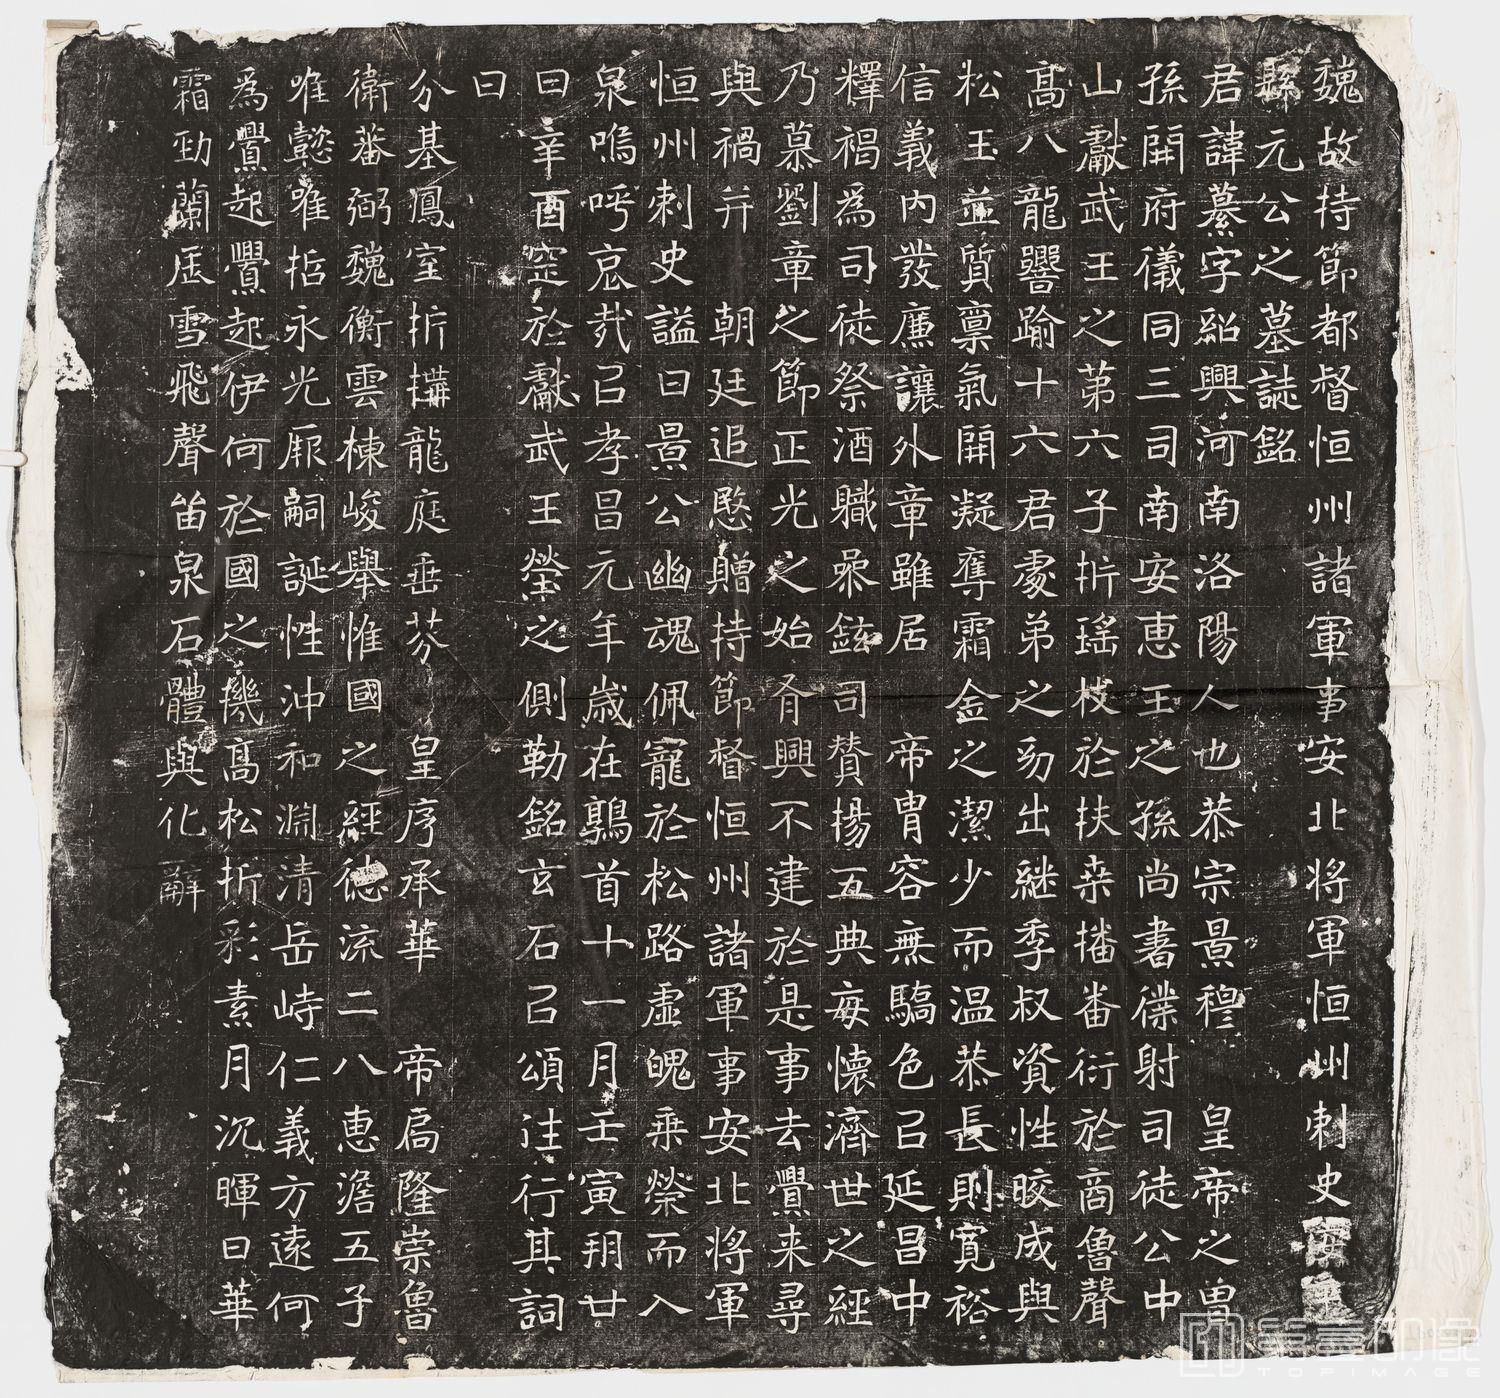 魏故持節都督恒州諸軍事安北將軍恒州刺史安平
縣元公之墓誌銘
君諱纂字紹興河南洛陽人也恭宗景穆　皇帝之曾
孫開府儀同三司南安惠王之孫尚書僕射司徒公中
山獻武王之第六子折瑤枝於扶桒播番衍於商魯聲
高八龍響踰十六君處弟之幼出継季叔資性晈成與
松玉並質稟氣開凝奪霜金之潔少而温恭長則寬裕
信義內發廉讓外章雖居　帝胄容無驕色㠯延昌中
釋褐為司徒祭酒職梟鉉司賛揚五典每懷濟世之經
乃慕劉章之節正光之始脊興不建於是事去釁来尋
與禍并　朝廷追愍贈持節督恒州諸軍事安北將軍
恒州刺史謚曰景公幽魂佩寵於松路虛魄乗榮而入
泉嗚呼哀㦲㠯孝昌元年歲在鶉首十一月壬寅朔廿
日辛酉窆於獻武王塋之側勒銘玄石㠯頌注行其詞
曰
分基鳳室折構龍庭垂芬　皇序承華　帝扃隆崇魯
衛蕃弼魏衡雲棟峻舉惟國之經德流二八惠澹五子
唯懿唯哲永光厥嗣誕性沖和淵清岳峙仁義方遠何
為釁起釁起伊何於國之機高松折彩素月沉暉日華
霜勁蘭居雪飛聲留泉石體與化辭
TOPIMAGE